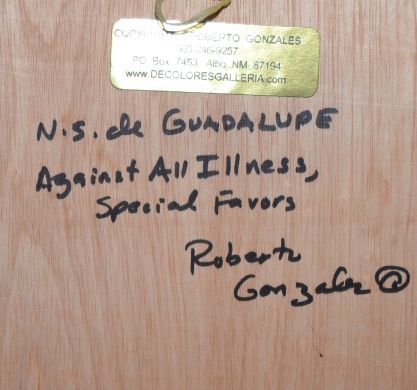 COPYRIGHT ROBERTO GONZALES
505-246-9257
PO. Box 7453 Albq.,NM 87194
www.DECOLORESGALLERIA.com
N.S. de GUADALUPE
Against All Illness,
Special Favors
Roberto
Gonzales